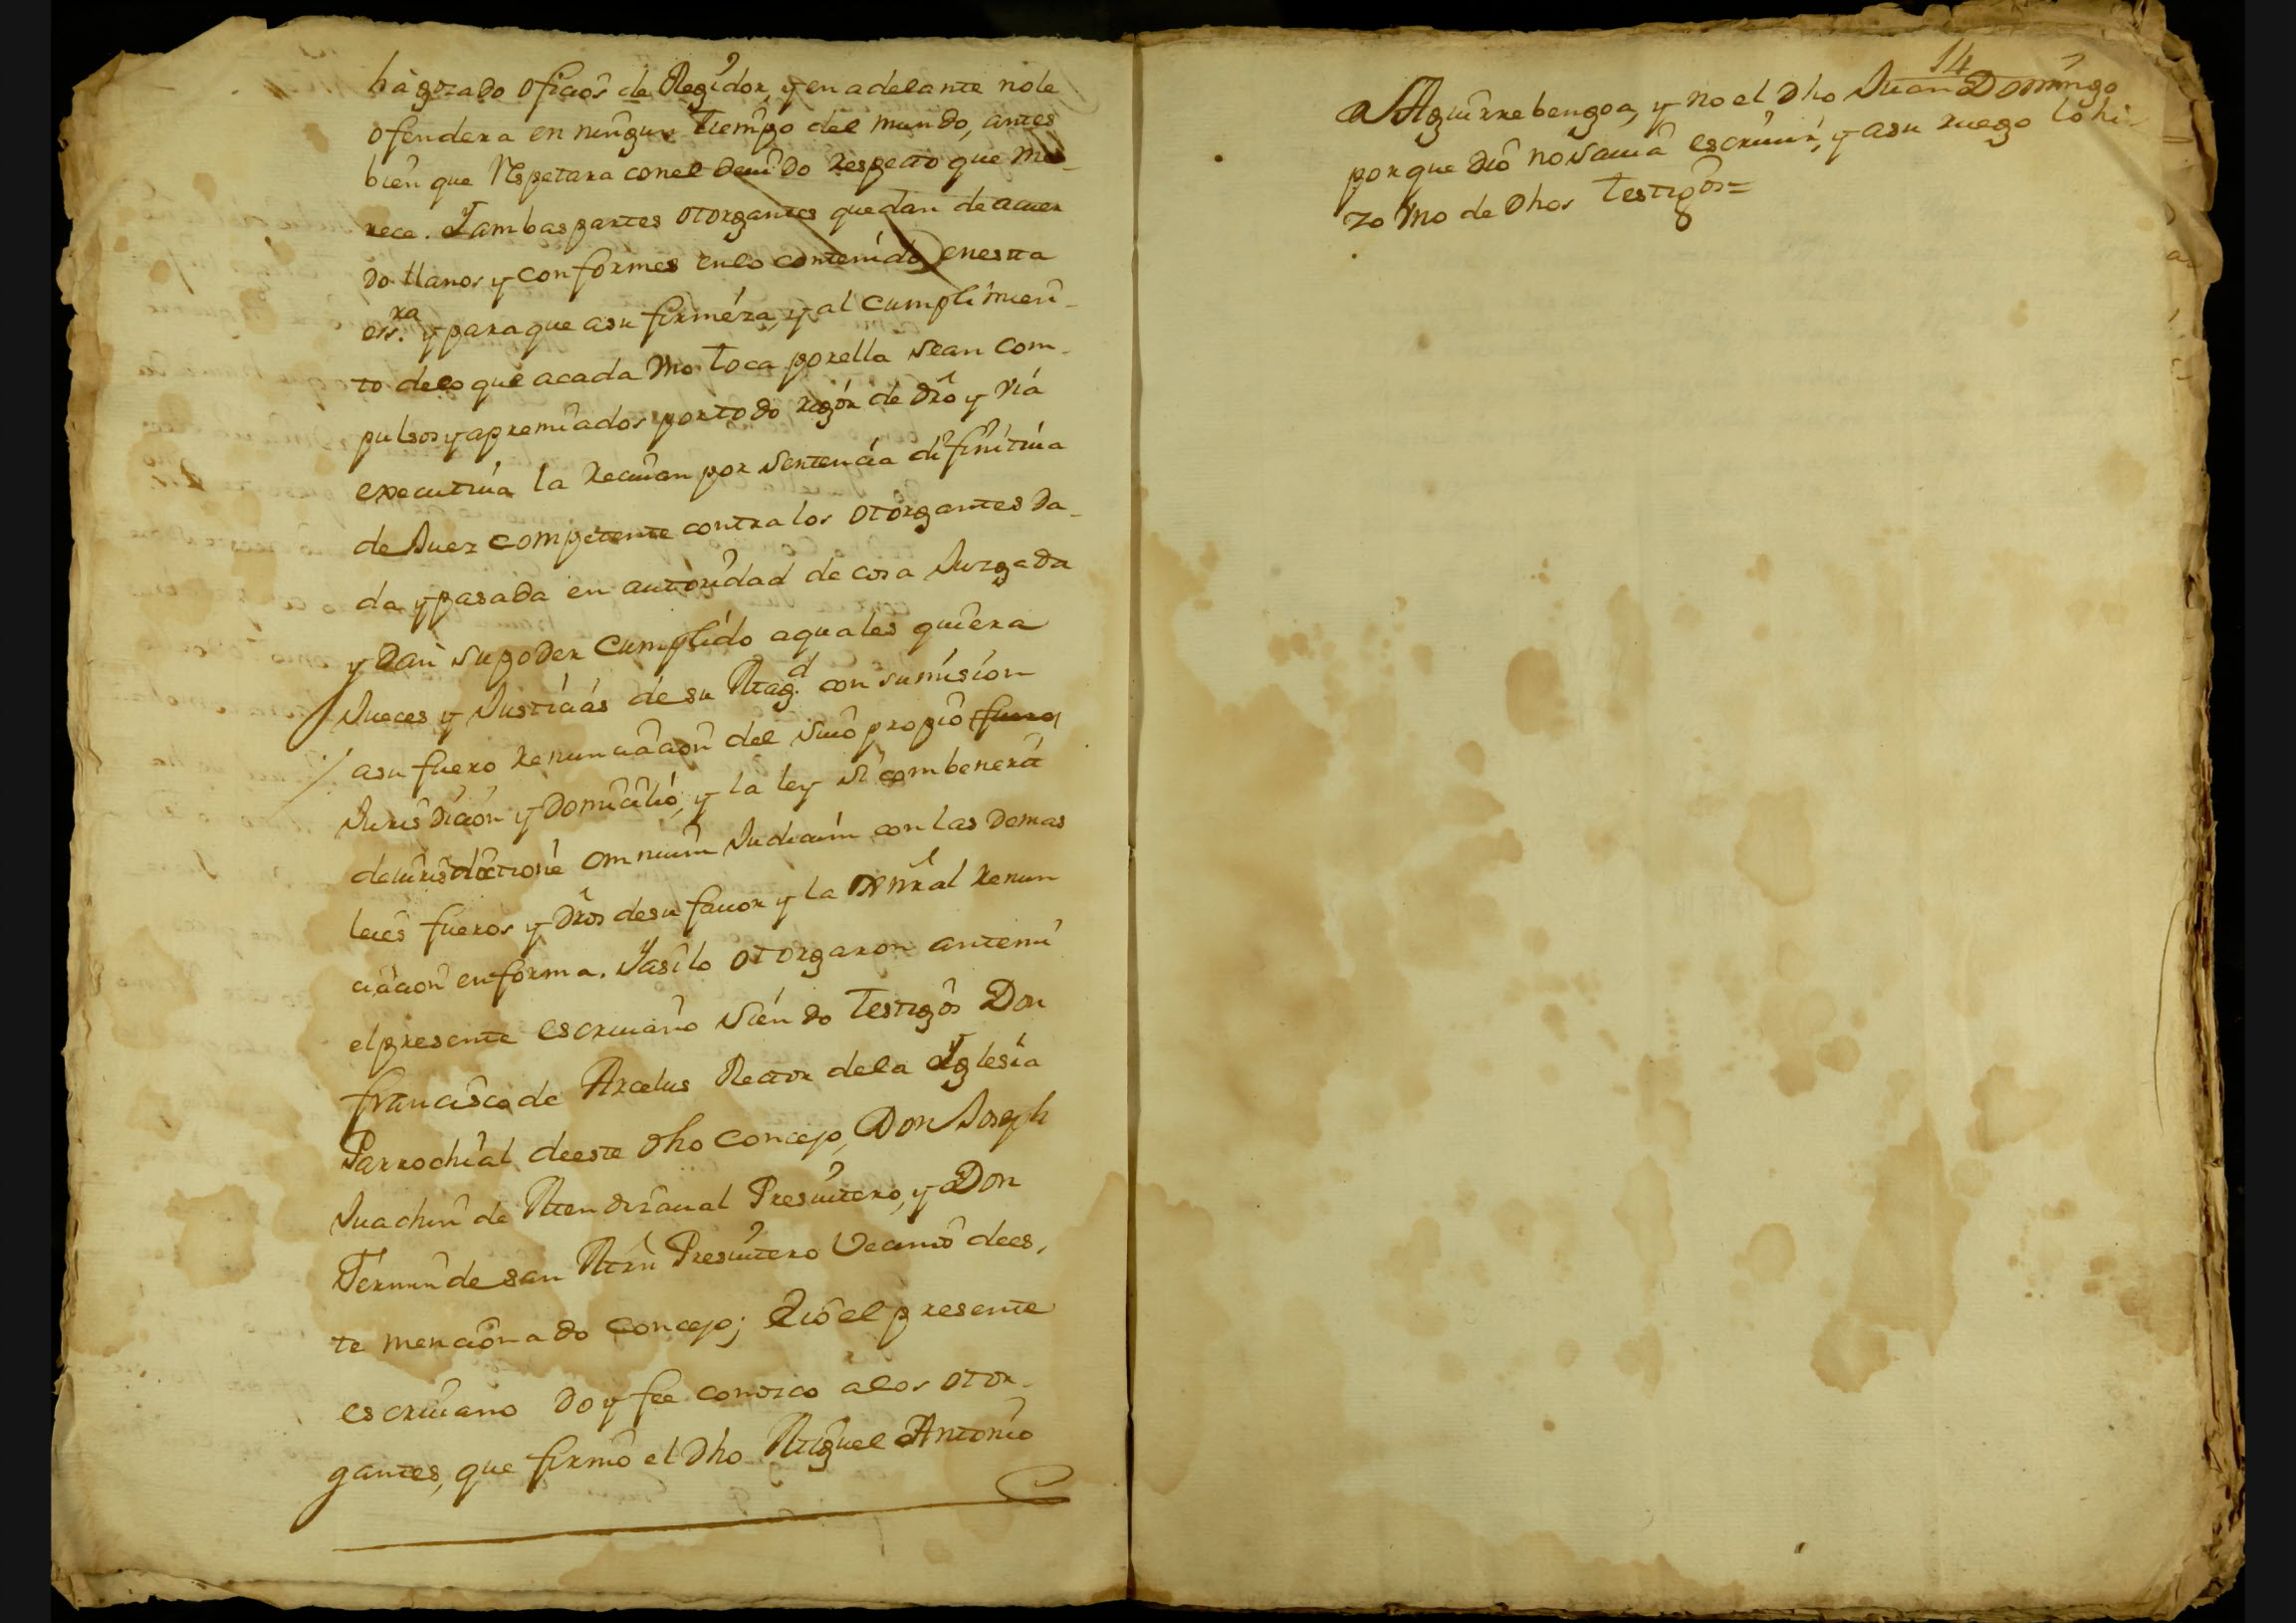 ha gozado oficios de Regidor, y en adelante no le
ofendera en ningun tiempo del mundo, antes
bien que Respetara con el deuido respecto que me-
rece. Y ambas partes otorgantes quedan de acuer
do llanos y conformes en lo contenido en esta
ess.ra y para que a su firmeza, y al cumplimien-
to de lo que a cada Vno toca por ella sean com-
pulsos y apremiados por todo rigor de dro y via
executiua la reciuian por sentencia difinitiua
de Juez competente contra los otorgantes da-
da y pasada en autoridad de cosa Juzgada
y dan su poder cumplido a quales quiera
Jueces y Justicias de su Mag.d con sumision
a su fuero renunciacion del suio propio fuero
Jurisdicion y domicilio, y la ley si combenerit
de iurisdictione omnium Judicum con las demas
leies fueros y dros de su fauor y la Gnral renun
ciacion en forma. Y asi lo otorgaron ante mi
el presente escriuano siendo testigos Don
francisco de Arcelus Rector de la Yglesia
Parrochial de este dho concejo, Don Joseph
Juachin de Mendizaual Presuitero, y Don
Fermin de san Mrn Presuitero Vecino de es-
te mencionado concejo; E io el presente
escriuano doy fee conozco a los otor-
gantes, que firmo el dho Miguel Antonio
14
Aguirrebengoa, y no el dho Juan Domingo
porque dijo no sauia escriuir, y a su ruego lo hi-
zo Vno de dhos testigos=